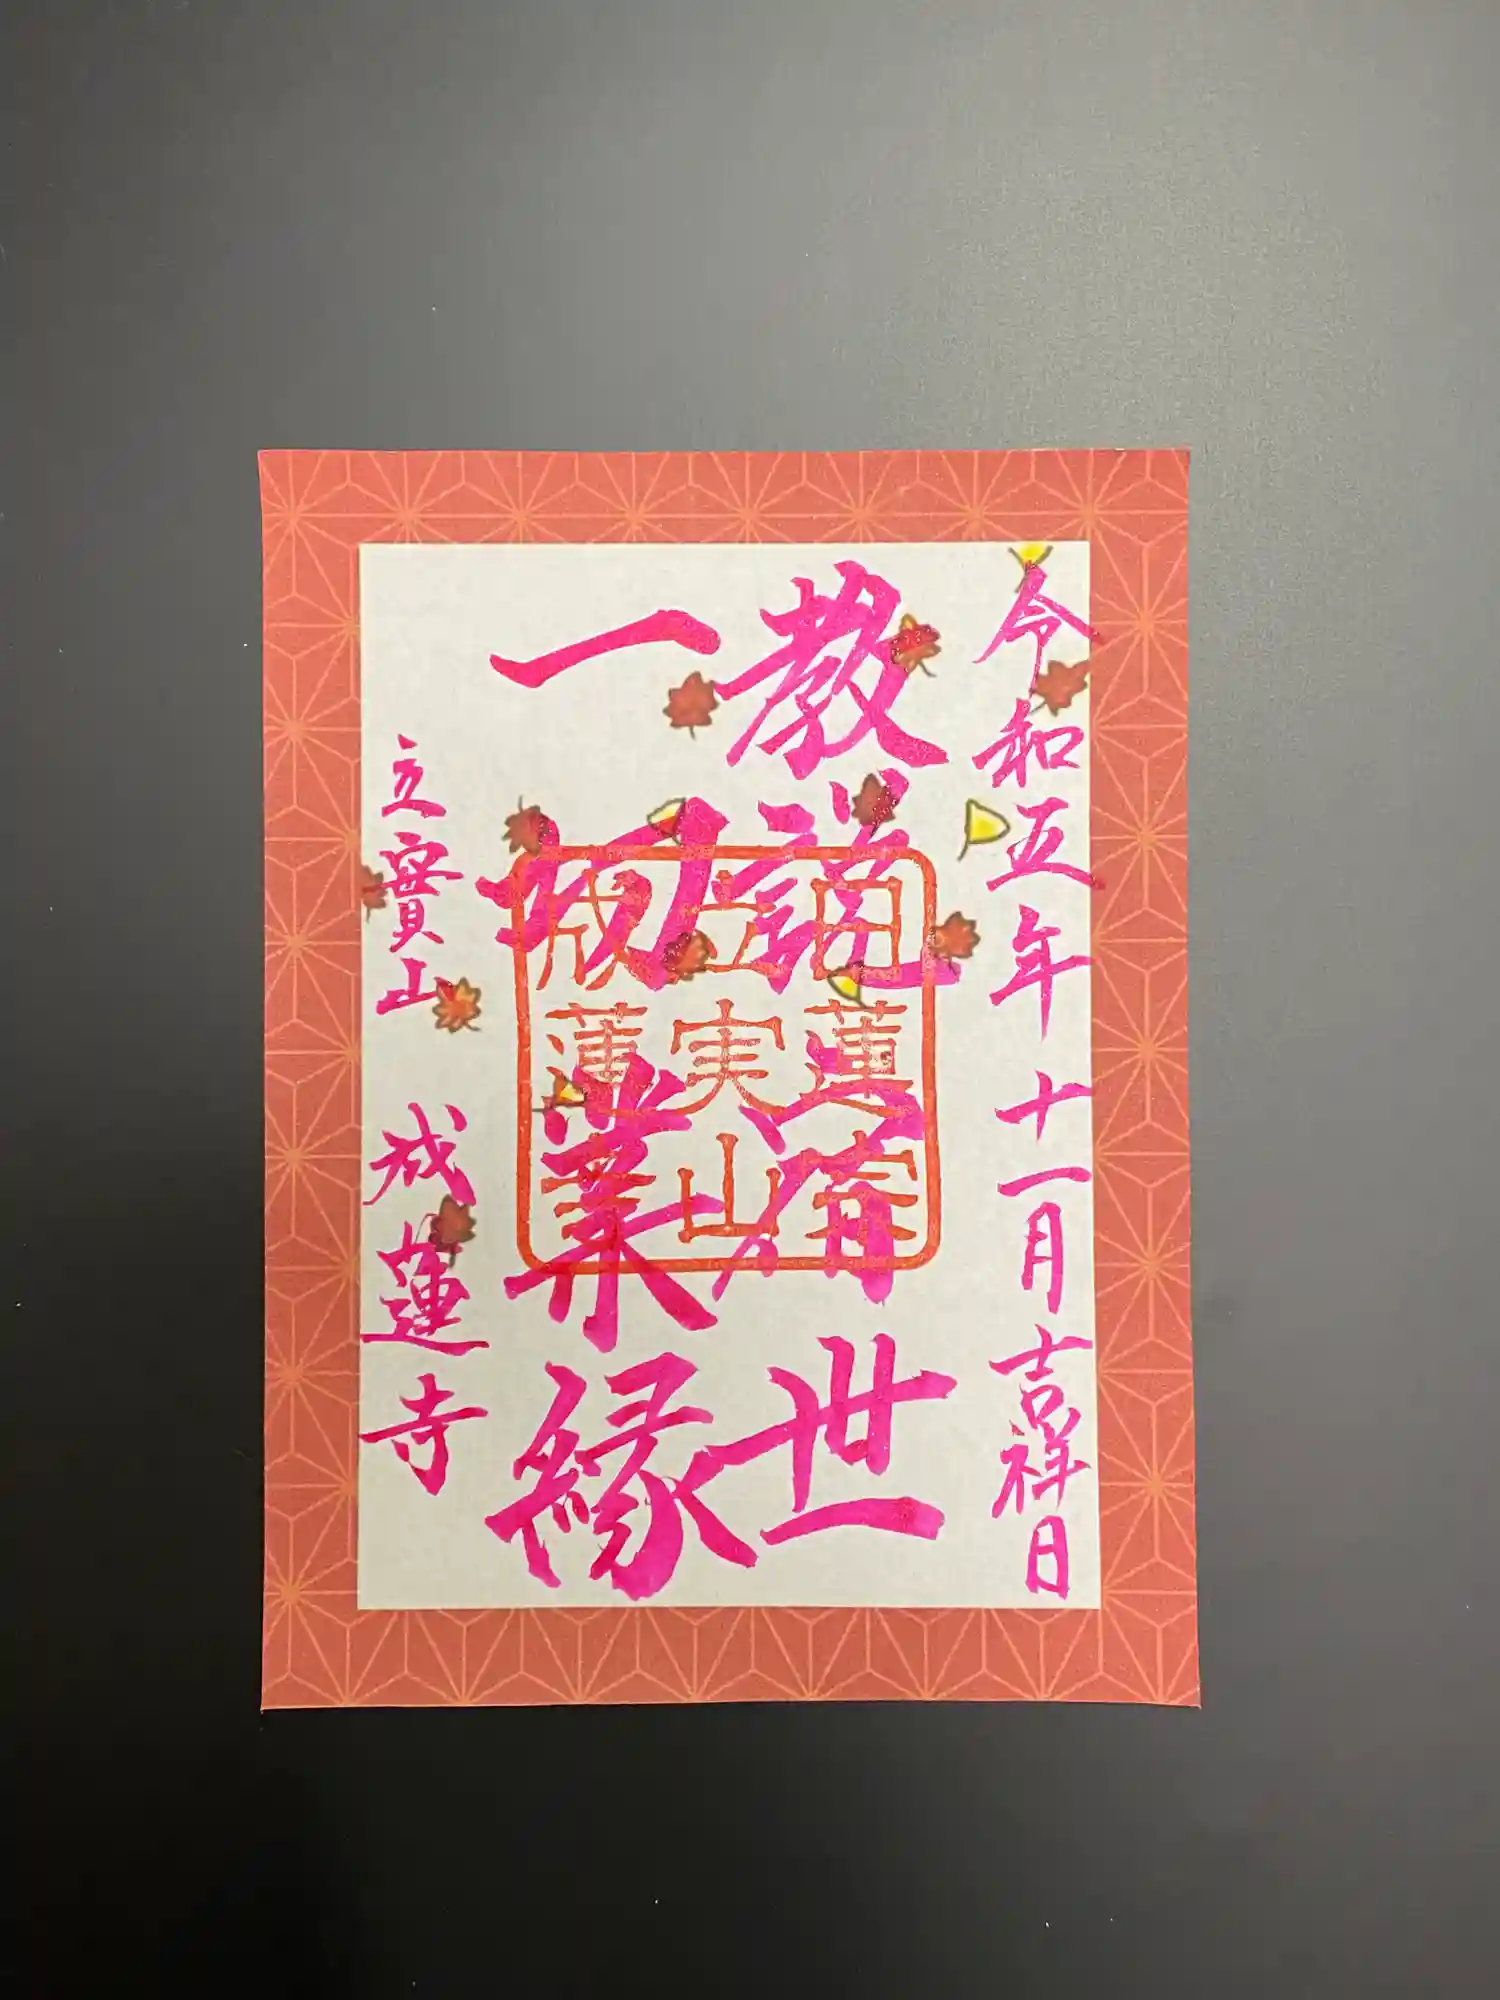 令和五年十一月吉祥日
教説世
一切業縁
立實山 成蓮寺
日蓮宗
立実山
成蓮寺